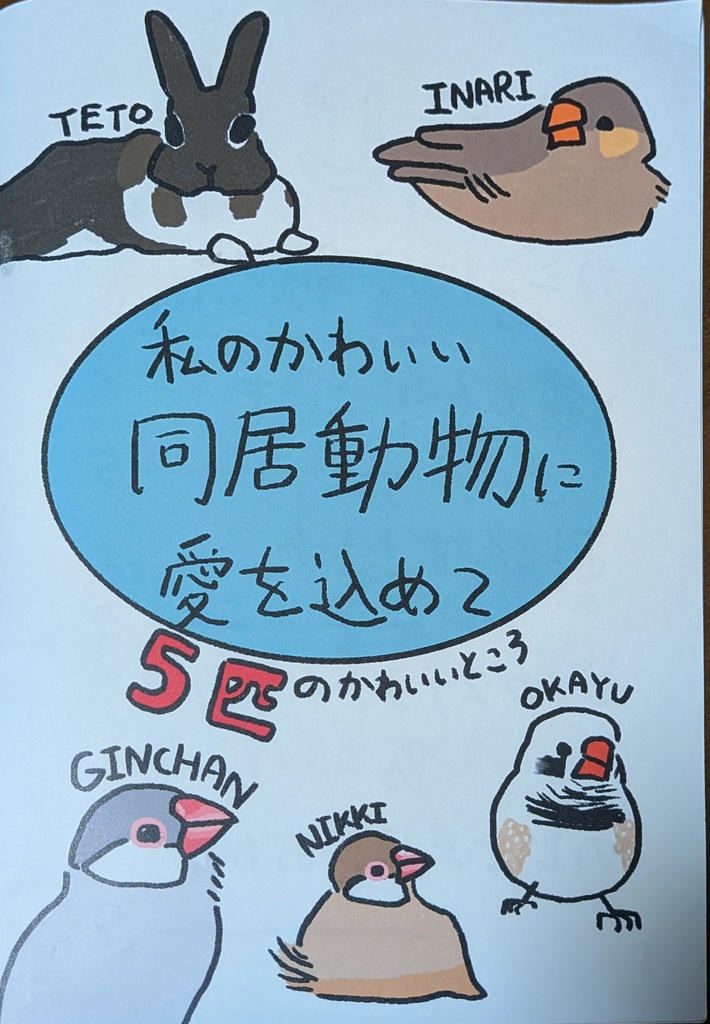 TETO
INARI
私のかわいい
同居動物に
愛を込めて
5匹のかわいいところ
OKAYU
GINCHAN
NIKKI